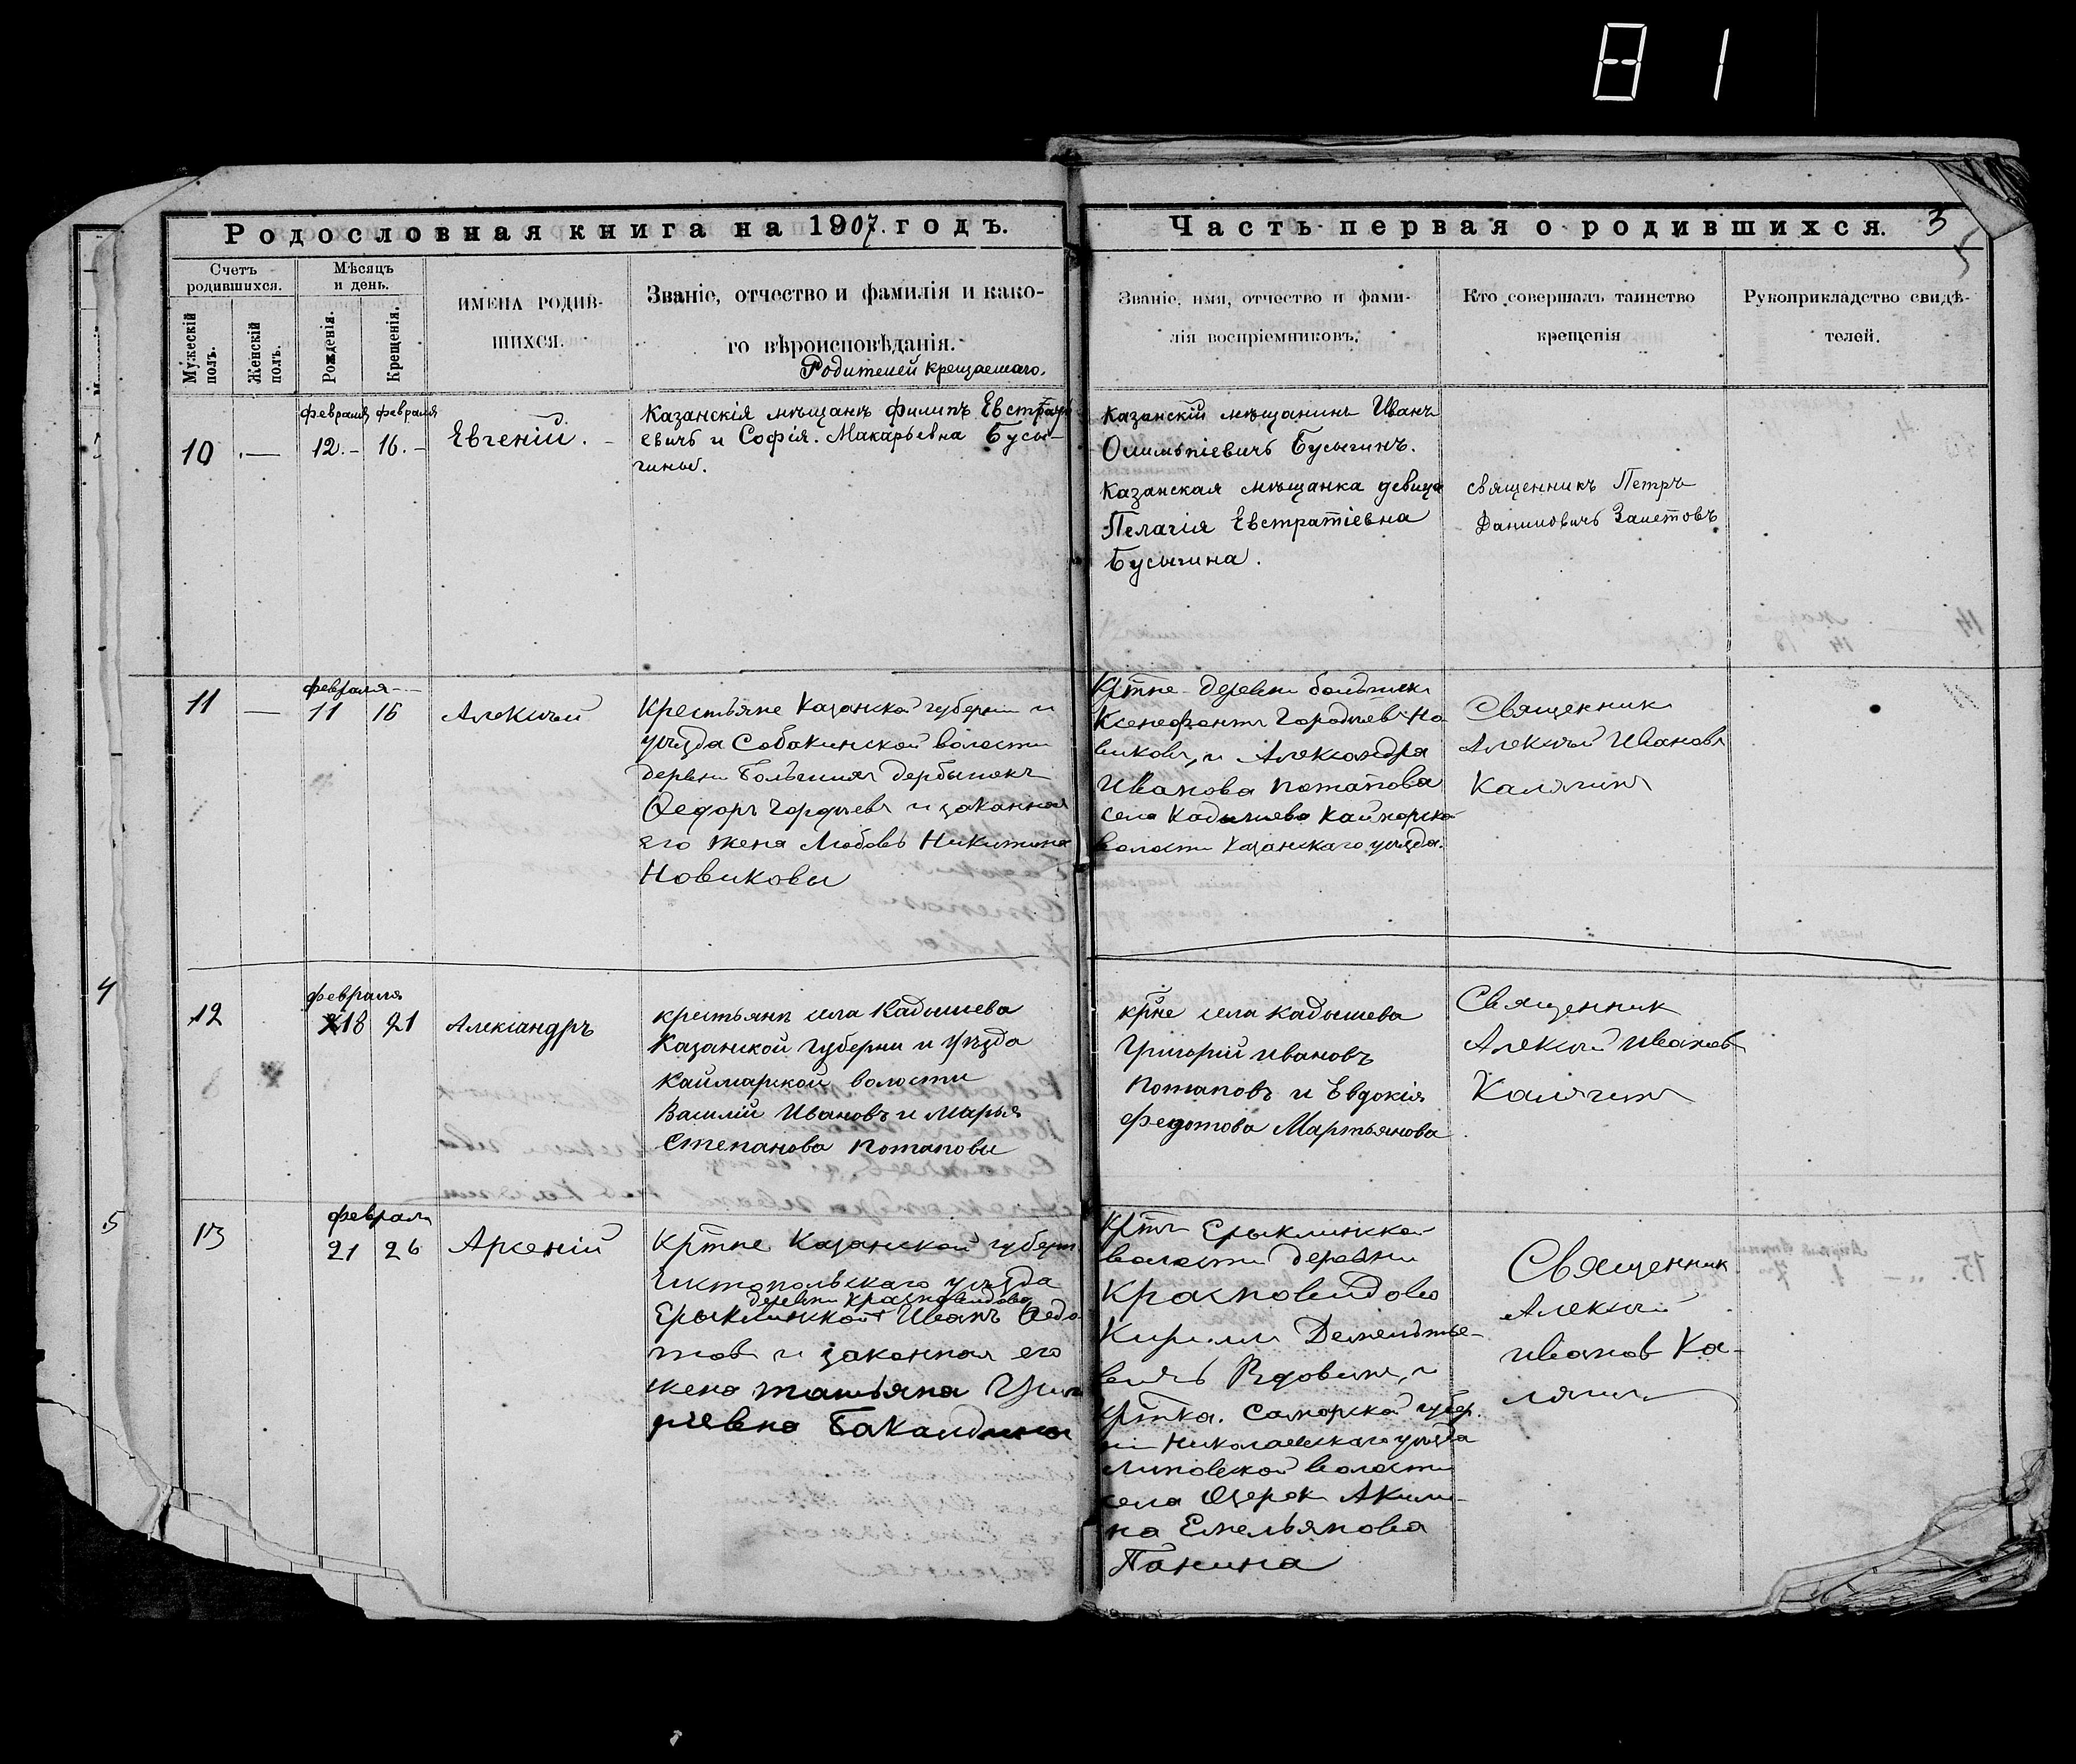 81
Родословная книга на 1907. годъ.
Часть первая о родившихся. 3
5
Счетъ родившихся.
Мужескій полъ.
Женскій полъ.
Мѣсяцъ и день.
Рожденія.
Крещенія.
ИМЕНА РОДИВ-
ШИХСЯ.
Званіе, отчество и фамилія и како-
го вѣроисповѣданія.
Родителей крещаемаго.
Званіе, имя, отчество и фами-
лія воспріемниковъ.
Кто совершалъ таинство
крещенія
Рукоприкладство свидѣ-
телей.
февраля февраля
10 — 12. – 16. –
Евгеній. –
Казанскія мѣщанъ Филипъ Евстрати
евичъ и Софія. Макарьевна Бусы-
гины.
Казанскій мѣщанинъ Иванъ
Олимпіевичъ Бусыгинъ.
Казанская мѣщанка девица
Пелагія Евстратіевна
Бусыгина.
священникъ Петръ
Даниловичъ Залетовъ
февраля
11 — 11 16
Алексѣй
Крестьяне Казанской губерніи и
уѣзда Собакинской волости
деревни Большихъ Дербышекъ
Ѳедоръ Гордѣевъ и законная
его жена Любовь Никитина
Новиковы
Кртне деревни
Ксенофонтъ Гордѣевъ Но
виковъ, и Александра
Иванова Потапова
села Кадышево Каймарско
волости Казанскаго уѣзда.
Священник
Алексѣй Ивановъ
Калягинъ
4
февраля
12 18 21
Александръ
крестьянъ села Кадышева
Казанской Губерни и Уѣзда
Каймарской волости
Василій Ивановъ и Марья
Степанова Потаповы
крне села Кадышева
Григорій Ивановъ
Потаповъ и Евдокія
Федотова Мартьянова
Священник
Алексѣй Иванов
Калягинъ
5
февраля
13 21 26
Арсеній
Кртне Казанской губерн
Чистопольскаго уѣзда
деревни Красновидово
Ерыклинской Иванъ Ѳедо
товъ и законная его
жена Татьяна Григо
рьевна Бакалдины
Кртъ Ерыклинско-
волости деревни
Красновидово
Кирилъ Дементье-
вичъ Вдовинъ, и
Кртка. Самарской губер.
ніи Николаевскаго уѣзда
Липовской волости
села Озерок Акили-
на Емельянова
Панина
Священник
Алексѣй
Иванов Ка-
лягин